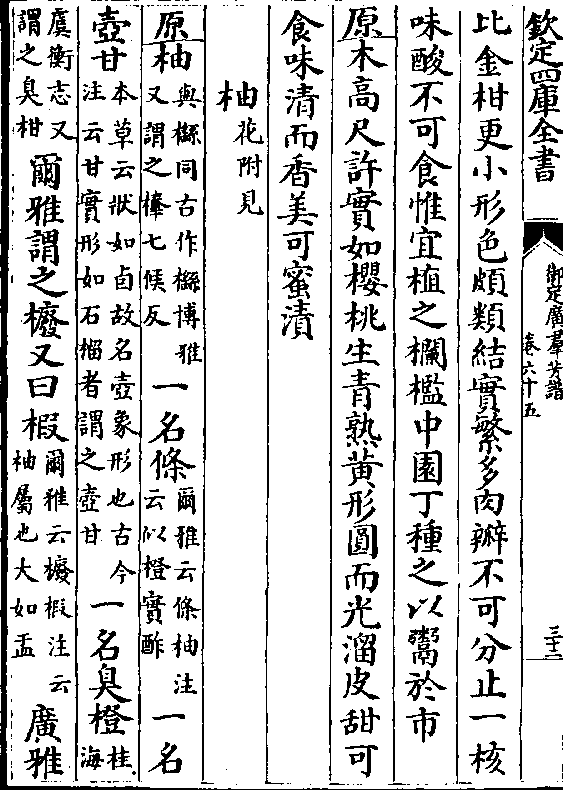 欽定四庫全書
御定廣羣芳譜
卷六十五
三十二
比金柑更小形色頗類結實繁多肉瓣不可分止一核
味酸不可食惟宜植之欄檻中園丁種之以鬻於市
原木高尺許實如櫻桃生青熟黃形圓而光溜皮甜可
食味清而香美可蜜漬
柚花附見
原柚與櫾同古作櫾博雅又謂之榛七候反一名條爾雅云條柚注云似橙實酢一名
壺甘本草云狀如卣故名壺象形也古今注云甘實形如石榴者謂之壺甘一名臭橙桂海
虞衡志又謂之臭柑爾雅謂之櫠又曰椵爾雅云櫠椵注云柚屬也大如盂廣雅